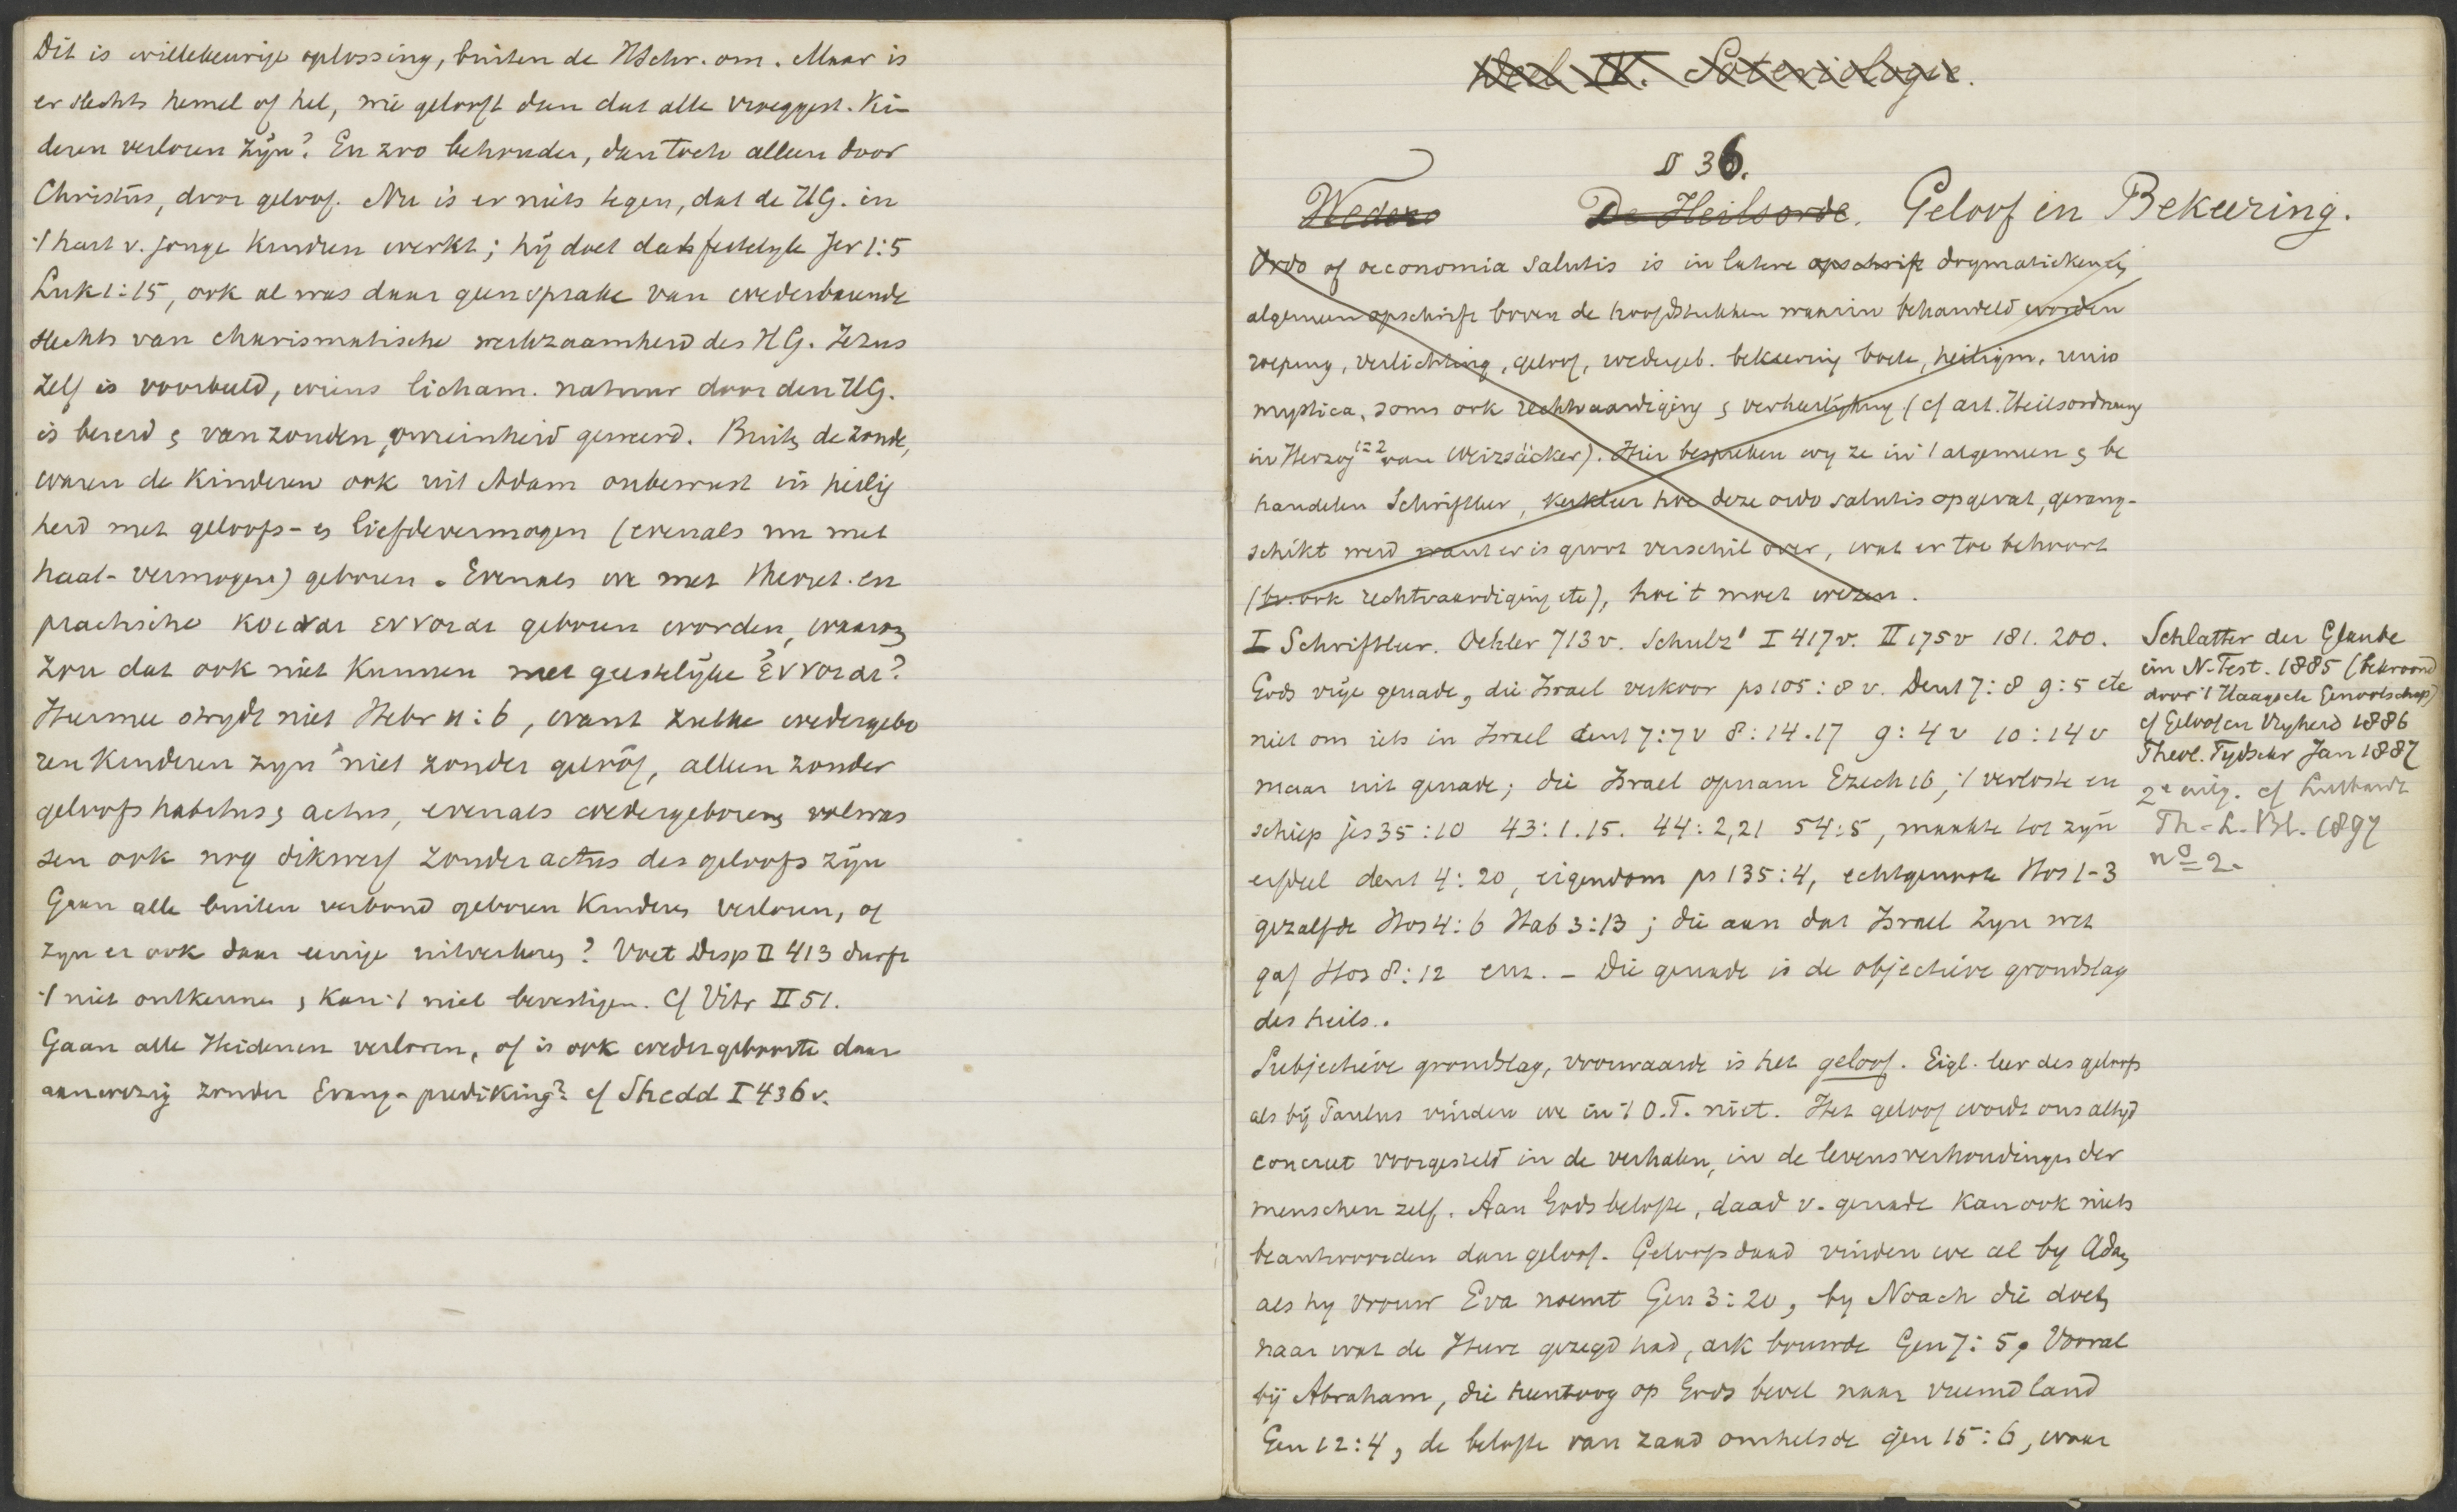 Dit is willekeurige oplossing, buiten de HSchr. om. Maar is
er slechts hemel of hel, wie gelooft dan dat alle vroeggest. Kin
deren verloren zijn? En zoo behouden, dan toch alleen door
Christus, door geloof. Nu is er niets tegen, dat de HG. in
't hart v. jonge kinderen werkt; hij doet dat feitelyk Jer 1:5
Luk 1:15, ook al was daar geen sprake van wederbarende
slechts van charismatische werkzaamheid des HG. Jezus
zelf is voorbeeld, wiens licham. natuur door den HG.
is bereid & van zonden, onreinheid geweerd. Buiten de zonde,
waren de kinderen ook uit Adam onbewust in heilig
heid met geloofs- en liefdevermogen (evenals nu met
haat-vermogen) geboren. Evenals we met theoret. en
practische κοιναι εννοιαι geboren worden, waarom
zou dat ook niet kunnen met geestelijke εννοιαι?
Hiermee strydt niet Hebr 11:6, want zulke wedergebo
ren kinderen zyn niet zonder geloof, alleen zonder
geloofshabitus & actus, evenals wedergeboren volwas
sen ook nog dikwerf zonder actus des geloofs zijn
Gaan alle buiten verbond geboren kinderen verloren, of
zyn er ook daar eenige uitverkoren? Voet Disp II 413 durft
't niet ontkennen, kan 't niet bevestigen. Cf Vitr II 51.
Gaan alle Heidenen verloren, of is ook wedergeboorte daar
aanwezig zonder Evang-prediking? cf Shedd I 436 v.
Deel IV. Soteriologie.
§ 36.
Wedero De Heilsorde. Geloof en Bekeering.
Ordo of oeconomia salutis is in latere opschrift dogmatieken
algemeen opschrift boven de hoofdstukken waarin behandeld worden
roeping, verlichting, geloof, wedergeb. bekeering boete, heiligm. unio
mystica, soms ook rechtvaardiging & verheerlijking (cf art. Heilsordnung
in Herzog 1=2 van Weizsäcker). Hier bespreken wy ze in 't algemeen & be
handelen Schriftleer, kerkleer hoe deze ordo salutis opgevat, gerang-
schikt werd want er is groot verschil over, wat er toe behoort
(bv. ook rechtvaardiging etc), hoe 't moet wezen.
I Schriftleer. Oehler 713 v. Schulz¹ I 417 v. II 175 v 181. 200.
Gods vrije genade, die Israel verkoor ps 105:8 v. Deut 7:8 9:5 etc
niet om iets in Israel deut 7:7 v 8:14.17 9:4 v 10:14 v
maar uit genade; die Israel opnam Ezech 16, 't verloste en
schiep jes 35:10 43:1.15. 44:2,21 54:5, maakte tot zijn
erfdeel deut 4:20, eigendom ps 135:4, echtgenoote Hos 1-3
gezalfde Hos 4:6 Hab 3:13; die aan dat Israel zyn wet
gaf Hos 8:12 enz. – Die genade is de objectieve grondslag
des heils.
Subjectieve grondslag, voorwaarde is het geloof. Eigl. leer des geloofs
als bij Paulus vinden we in 't O.T. niet. Het geloof wordt ons altyd
concreet voorgesteld in de verhalen, in de levensverhoudingen der
menschen zelf. Aan Gods belofte, daad v. genade kan ook niets
beantwoorden dan geloof. Geloofsdaad vinden we al by Adam
als hy vrouw Eva noemt Gen 3:20, by Noach die doet
naar wat de Heere gezegd had, ark bouwde Gen 7:5, Vooral
bij Abraham, die heentoog op Gods bevel naar vreemd land
Gen 12:4, de belofte van zaad omhelsde gen 15:6, waar
Schlatter der Glaube
im N. Test. 1885 (bekroond
door 't Haagsche Genootschap)
cf Geloof en Vryheid 1886
Theol. Tydschr Jan 1887
2e uitg. cf Luthardt
Th-L-Bl. 1897
nº 2.